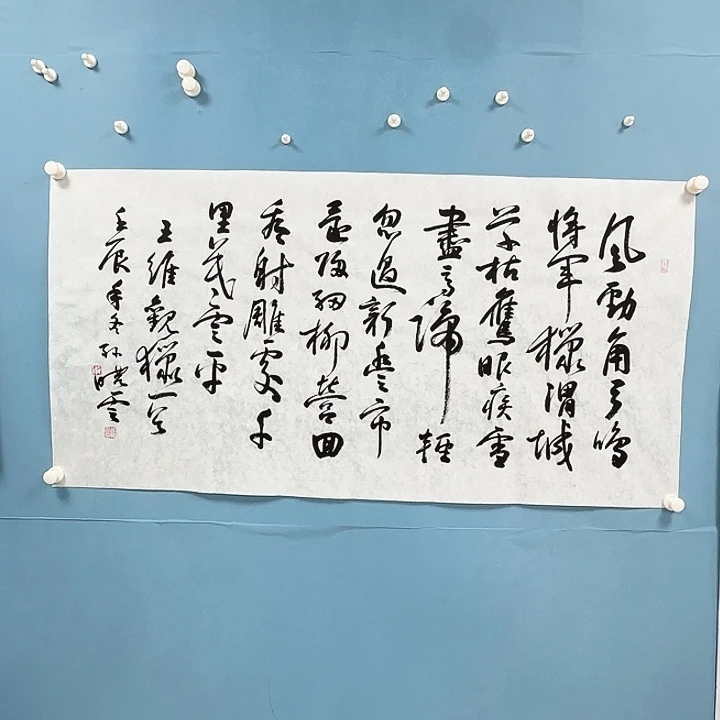 風勁角弓鳴
將軍獵渭城
草枯鷹眼疾雪
盡馬蹄輕
忽過新豐市
還歸細柳營回
看射雕處千
里暮雲平
王維觀獵一首
壬辰年冬孫曉雲